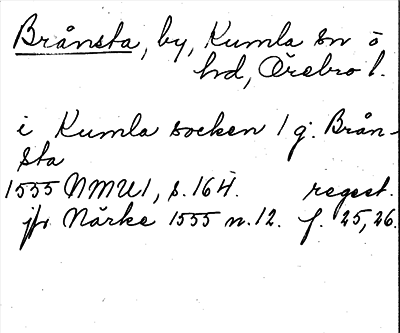 Brånsta, by, Kumla sn o
hd, Örebro l.
i Kumla socken 1 g. Brån-
sta
1555 NMU1, s. 164. regest.
jfr Närke 1555 n. 12. f. 25, 26.